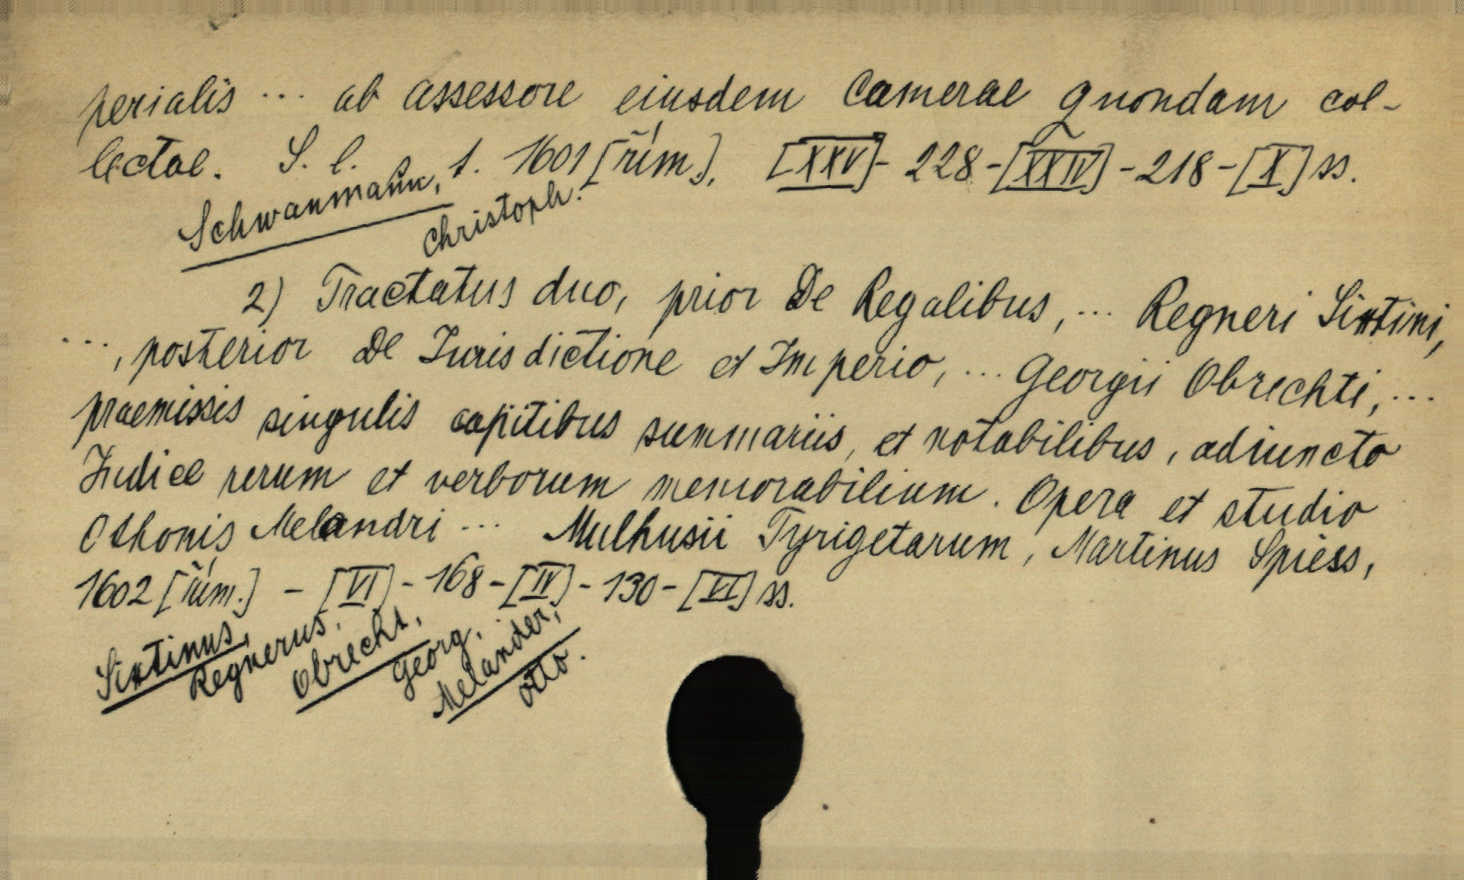 perialis ... ab assessore eiusdem Camerae quondam col-
lectae. S. l. t. 1601 [řím.], [XXV]- 228 -[XXIV] - 218 - [X] ss.
Schwanmann,
Christoph.
2) Tractatus duo, prior De Regalibus, ... Regneri Sixtini,
..., posterior De Iurisdictione et Imperio, ... Georgii Obrechti, ...
praemissis singulis capitibus summariis, et notabilibus, adiuncto
Indice rerum et verborum memorabilium. Opera et studio
Othonis Melandri ... Mulhusii Tyrigetarum, Martinus Spiess,
1602 [řím.] - [VI] - 168 - [IV] - 130 - [VI] ss.
Sixtinus,
Regnerus.
Obrecht,
Georg.
Melander,
Otto.